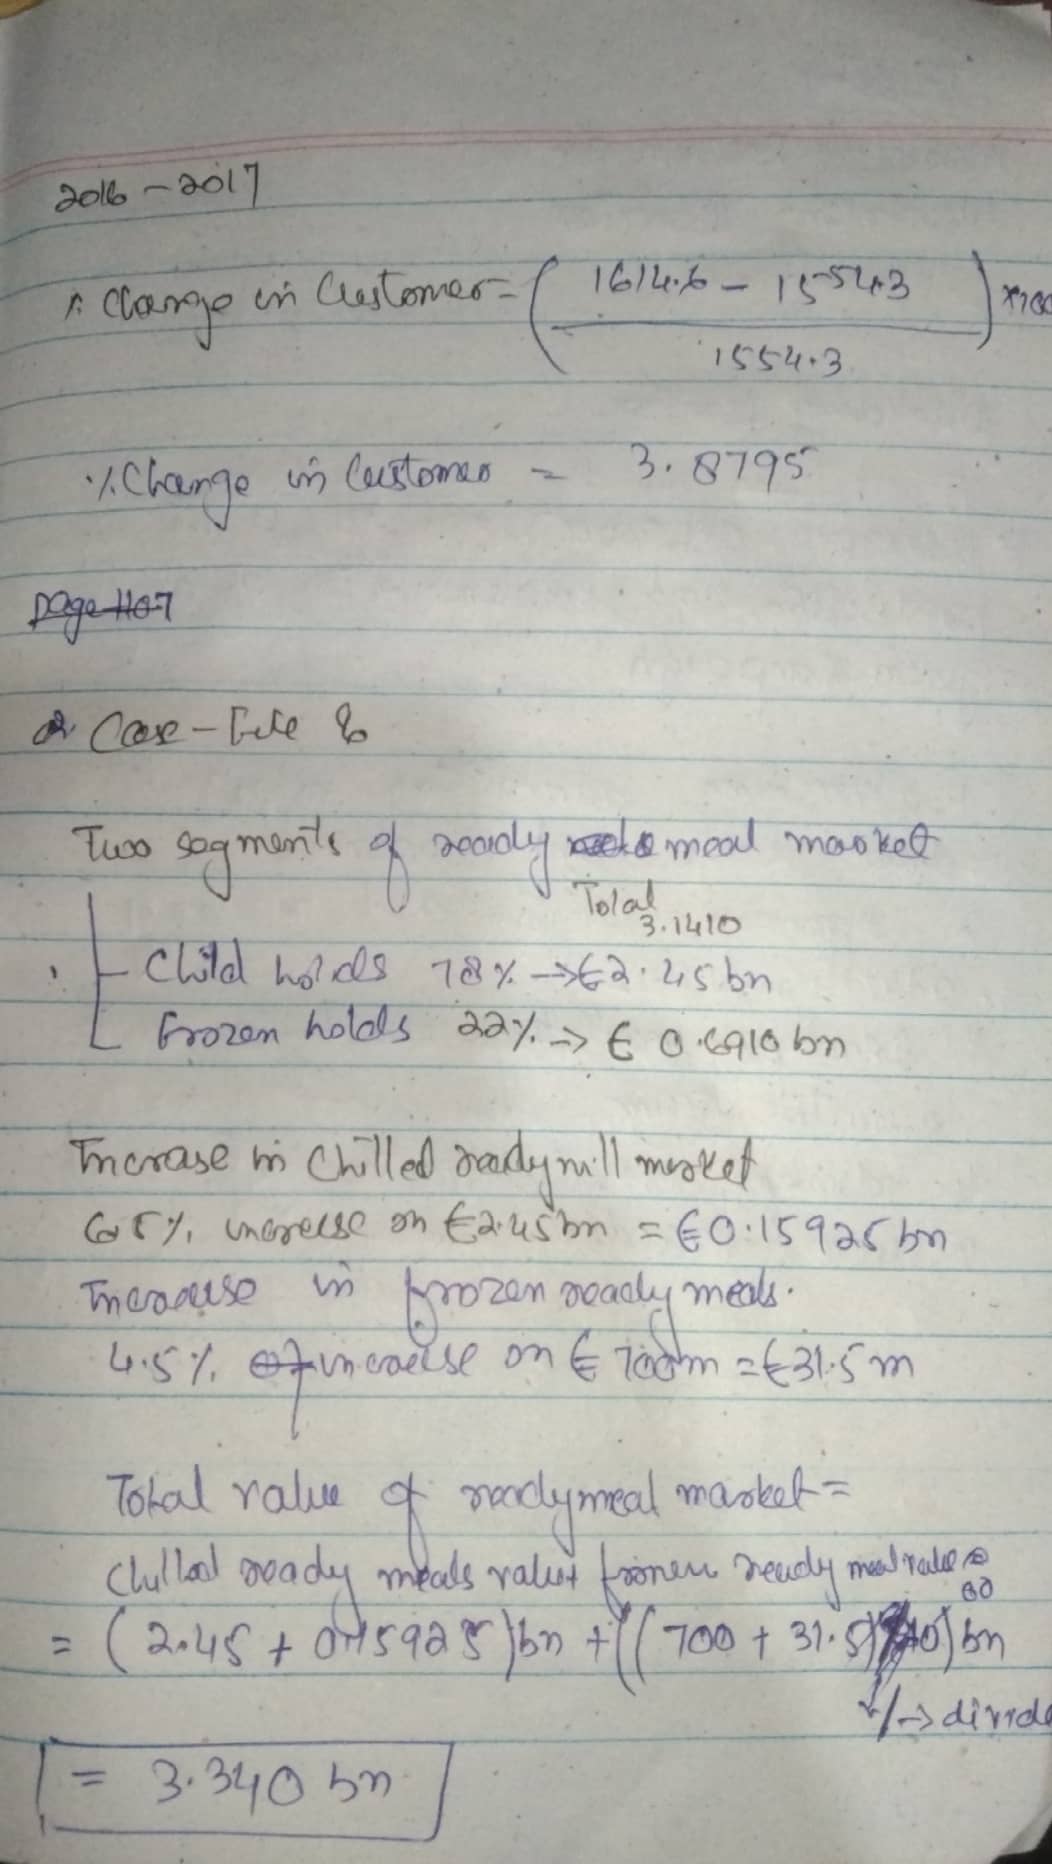 2016 - 2017
% Change in Customer = ( 1614.6 - 1554.3 ) × 100
1554.3
% Change in Customer = 3.8795
Case - File
Two segments of ready meal market
Total
3.1410
Child holds 78% → €2.45 bn
Frozen holds 22% → € 0.6910 bn
Increase in Chilled readymill market
6.5% increase on €2.45bn = €0.15925 bn
Increase in frozen ready meals.
4.5% increase on € 700m = €31.5 m
Total value of readymeal market =
Chilled ready meals value + frozen ready meal value
= ( 2.45 + 0.15925 )bn + ((700 + 31.5) bn
/ → divide
= 3.340 bn